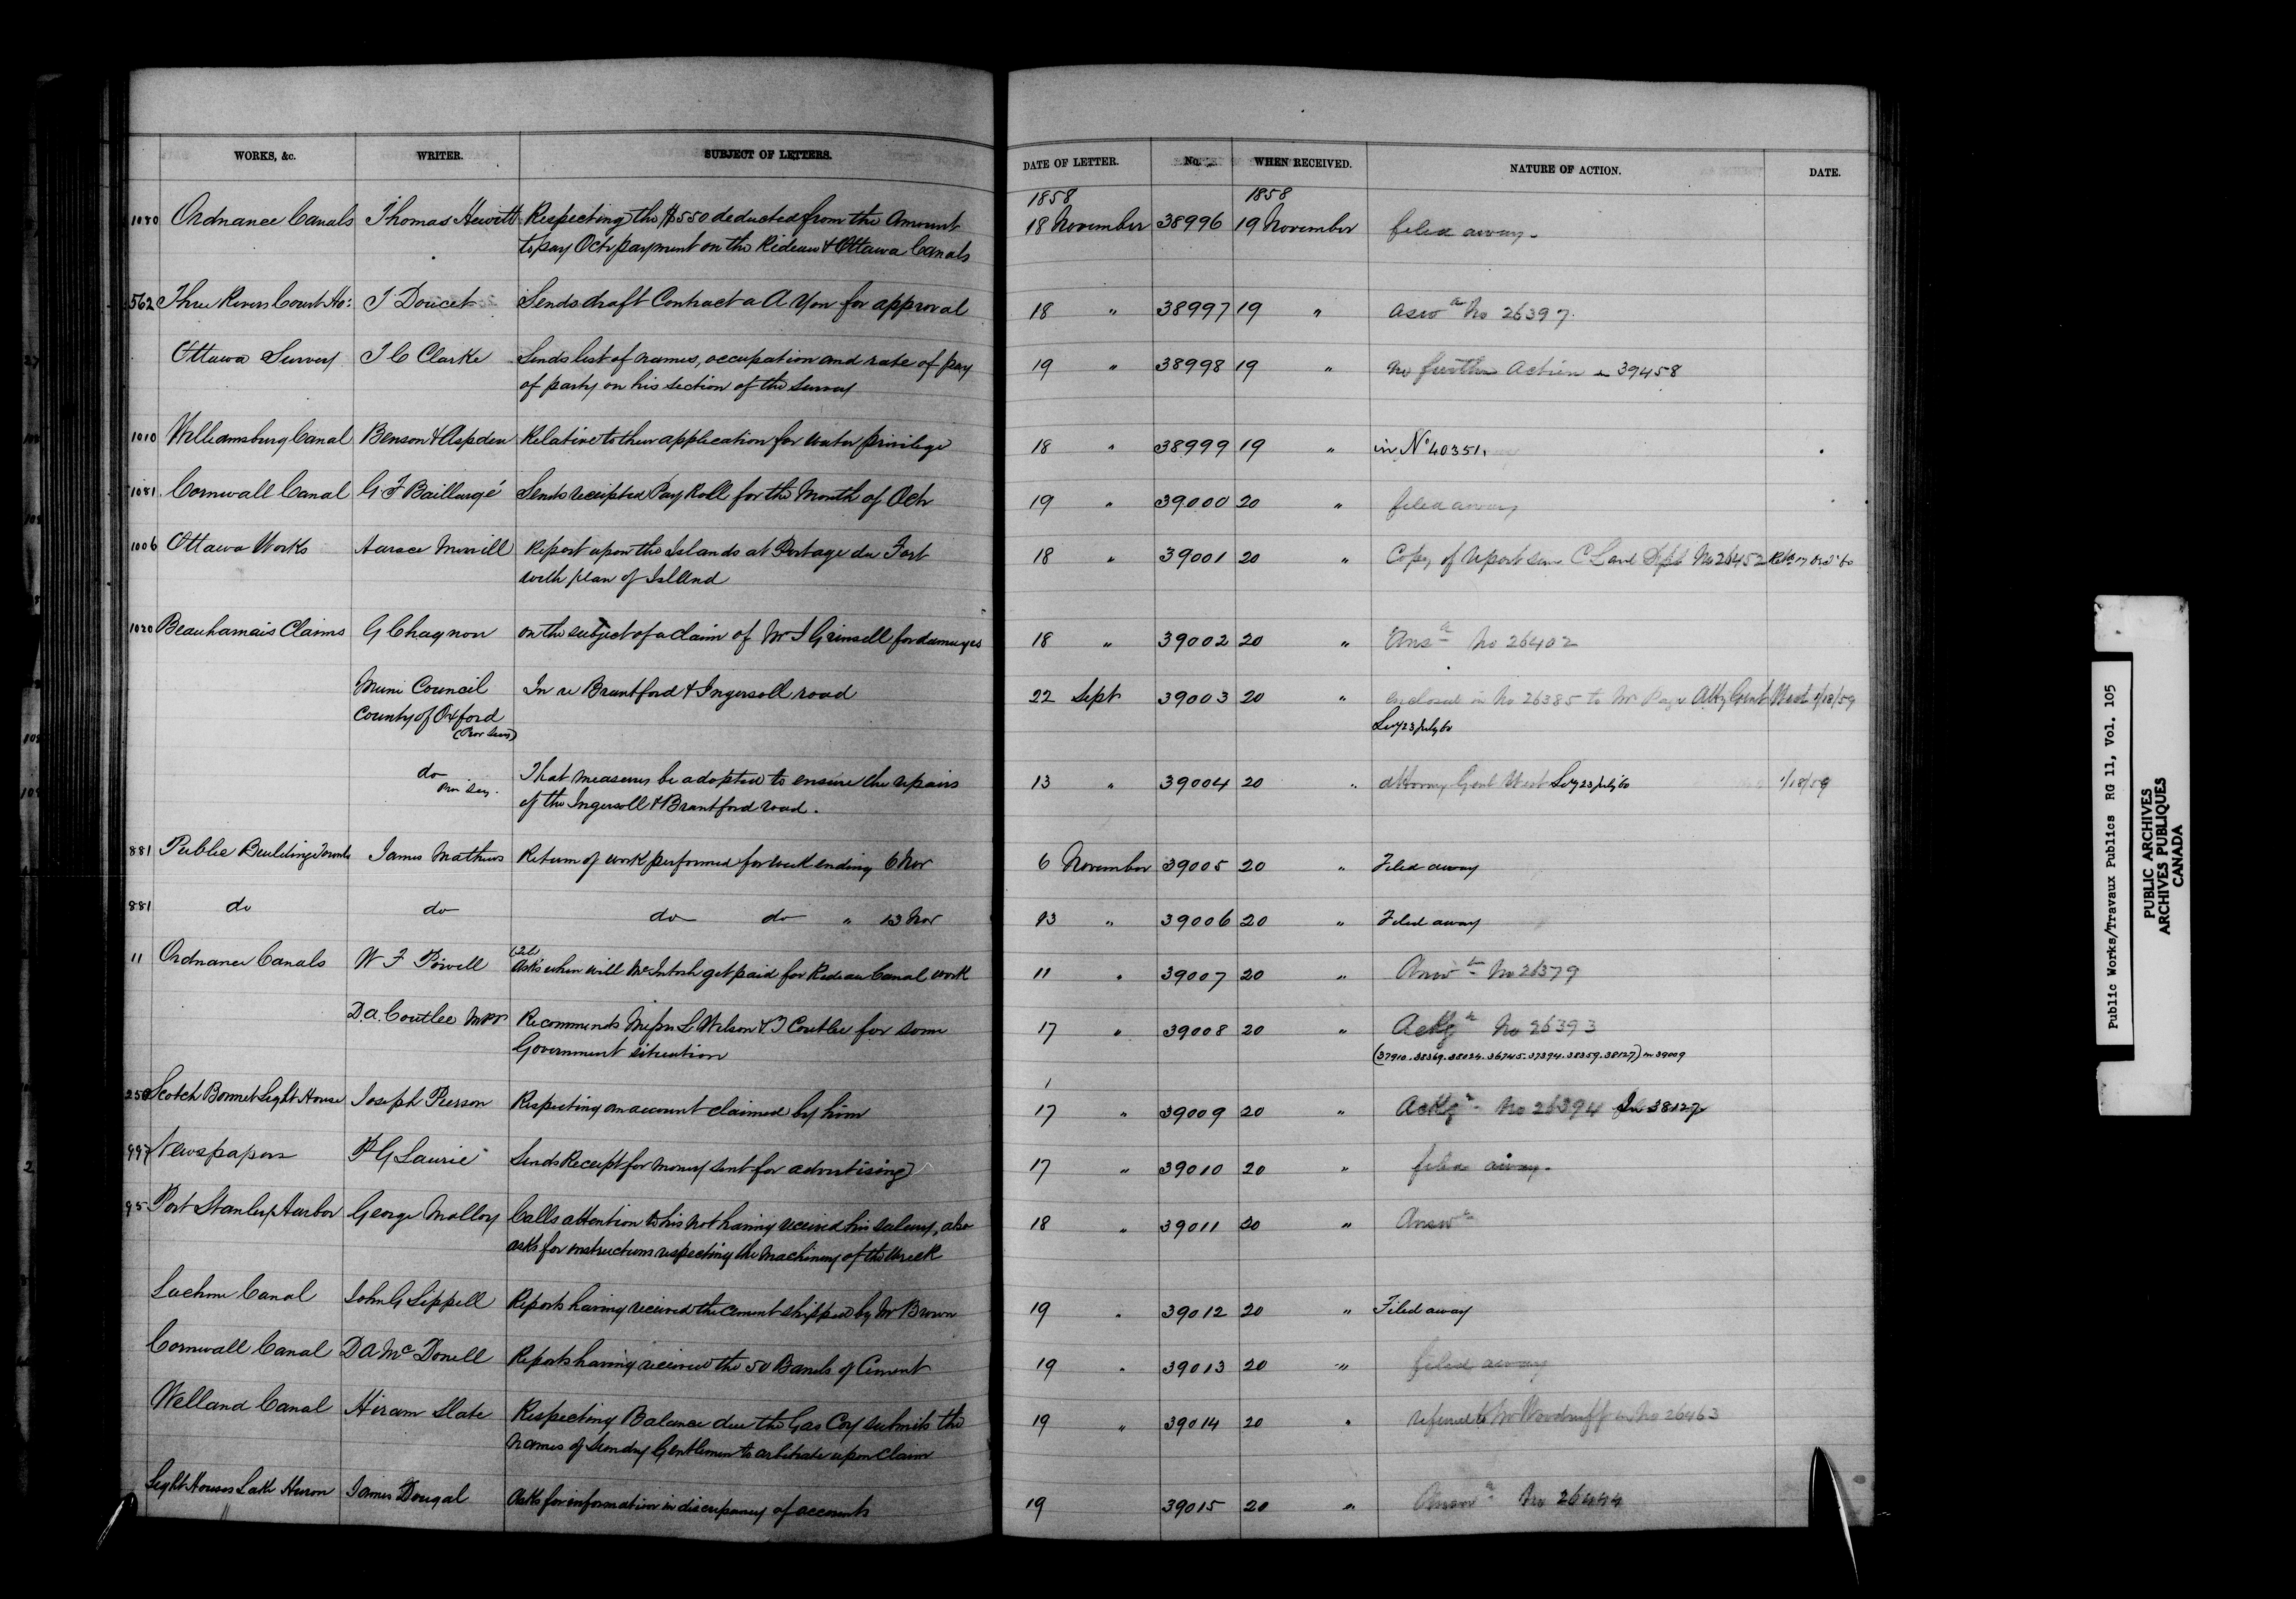 WORKS, &c. WRITER. SUBJECT OF LETTERS. DATE OF LETTER. No. WHEN RECEIVED. NATURE OF ACTION. DATE.
1858 1858
1080 Ordnance Canals Thomas Hewitt Respecting the $550 deducted from the Amount 18 November 38996 19 November filed away.
to pay Octr payment on the Rideau & Ottawa Canals
562 Three Rivers Court Ho: T Doucet Sends draft Contract a A Yon for approval 18 " 38997 19 " No 26397
Ottawa Survey T C Clarke Sends list of names, occupation and rate of pay 19 " 38998 19 " no further Action in 39458
of party on his section of the Survey
1010 Williamsburg Canal Benson & Aspden Relative to their application for water privilege 18 " 38999 19 " in No 40351.
1081 Cornwall Canal G F Baillargé Sends receipted Pay Roll for the Month of Octr 19 " 39000 20 " filed away
1006 Ottawa Works Horace Merrill Report upon the Islands at Portage du Fort 18 " 39001 20 " Copy of report C Land Dept No 26452
with plan of Island
1020 Beauharnais Claims G Chagnon on the subject of a Claim of Mr J Grinsell for damages 18 " 39002 20 " Ansd No 26402
Muni Council In re Brantford & Ingersoll road 22 Sept 39003 20 " enclosed in No 26385 to Mr Page Atty Genl West 1/18/59
County of Oxford 23 July 60
(Prov Secy)
do That measures be adopted to ensure the repairs 13 " 39004 20 " Attorney Genl West 23 July 60 1/18/59
Prov Secy.
of the Ingersoll & Brantford road.
881 Public Buildings Toronto James Mathews Return of work performed for week ending 6 Nov 6 November 39005 20 " Filed away
881 do do do do " 13 Nov 13 " 39006 20 " Filed away
11 Ordnance Canals W F Powell Asks when will McIntosh get paid for Rideau Canal work 11 " 39007 20 " Answd No 26379
D.A. Coutlee MPP Recommends Messrs L Wilson & T Coutlee for some 17 " 39008 20 " Ackgd No 26393
Government situation (37910.38369.38024.36745.37394.38359.38127) in 39009
250 Scotch Bonnet Light House Joseph Pierson Respecting an account claimed by him 17 " 39009 20 " Ackgd No 26394 38127
997 Newspapers P G Laurie Sends Receipt for money sent for advertising 17 " 39010 20 " filed away.
95 Port Stanley Harbor George Malloy Calls attention to his not having received his salary, also 18 " 39011 20 " Answd
asks for instructions respecting the machinery of the wreck
Lachine Canal John G Sippell Reports having received the cement shipped by Mr Brown 19 " 39012 20 " Filed away
Cornwall Canal D A McDonell Reports having received the 50 Barrels of Cement 19 " 39013 20 " filed away
Welland Canal Hiram Slate Respecting Balance due the Gas Coy submits the 19 " 39014 20 " referred to Mr Woodruff in No 26463
names of Sundry Gentlemen to arbitrate upon Claim
Light Houses Lake Huron James Dougal Asks for information in discrepancy of accounts 19 39015 20 " Answd No 26444
Public Works/Travaux Publics RG 11, Vol. 105
PUBLIC ARCHIVES
ARCHIVES PUBLIQUES
CANADA